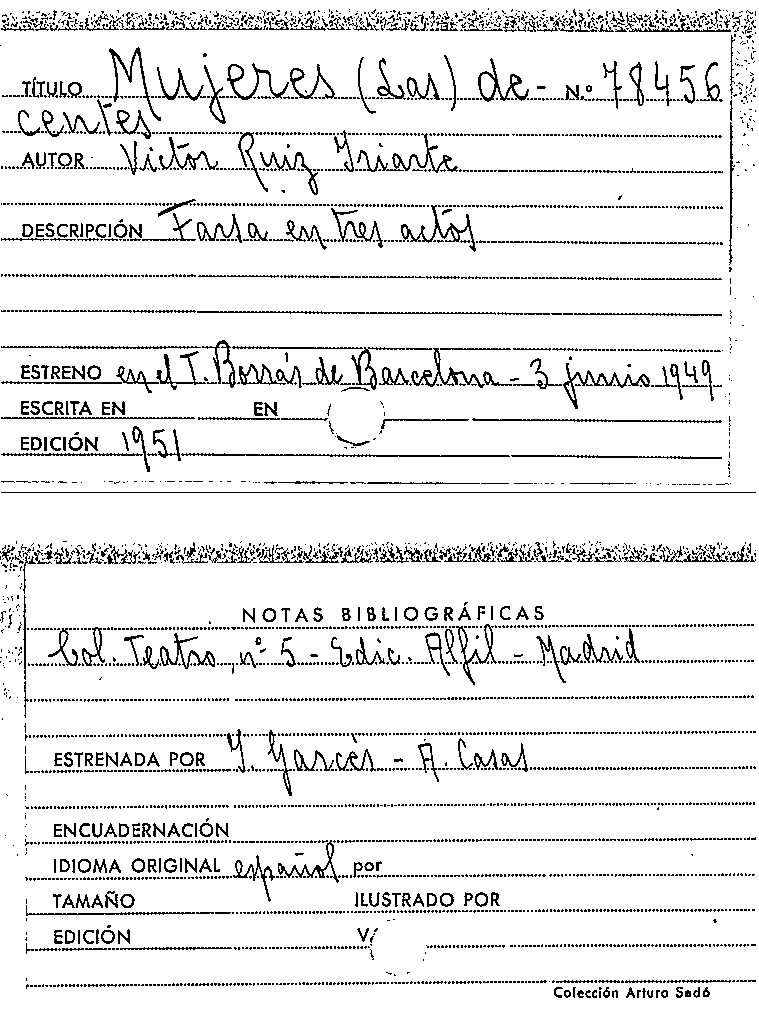 TÍTULO Mujeres (Las) de- N.º 78456
centes
AUTOR Victor Ruiz Iriarte
DESCRIPCIÓN Farsa en tres actos
ESTRENO en el T. Borrás de Barcelona - 3 junio 1949
ESCRITA EN EN
EDICIÓN 1951
NOTAS BIBLIOGRÁFICAS
Col. Teatro, nº 5 - Edic. Alfil - Madrid
ESTRENADA POR I. Garcés - A. Casas
ENCUADERNACIÓN
IDIOMA ORIGINAL español por
TAMAÑO ILUSTRADO POR
EDICIÓN
Colección Arturo Sedó